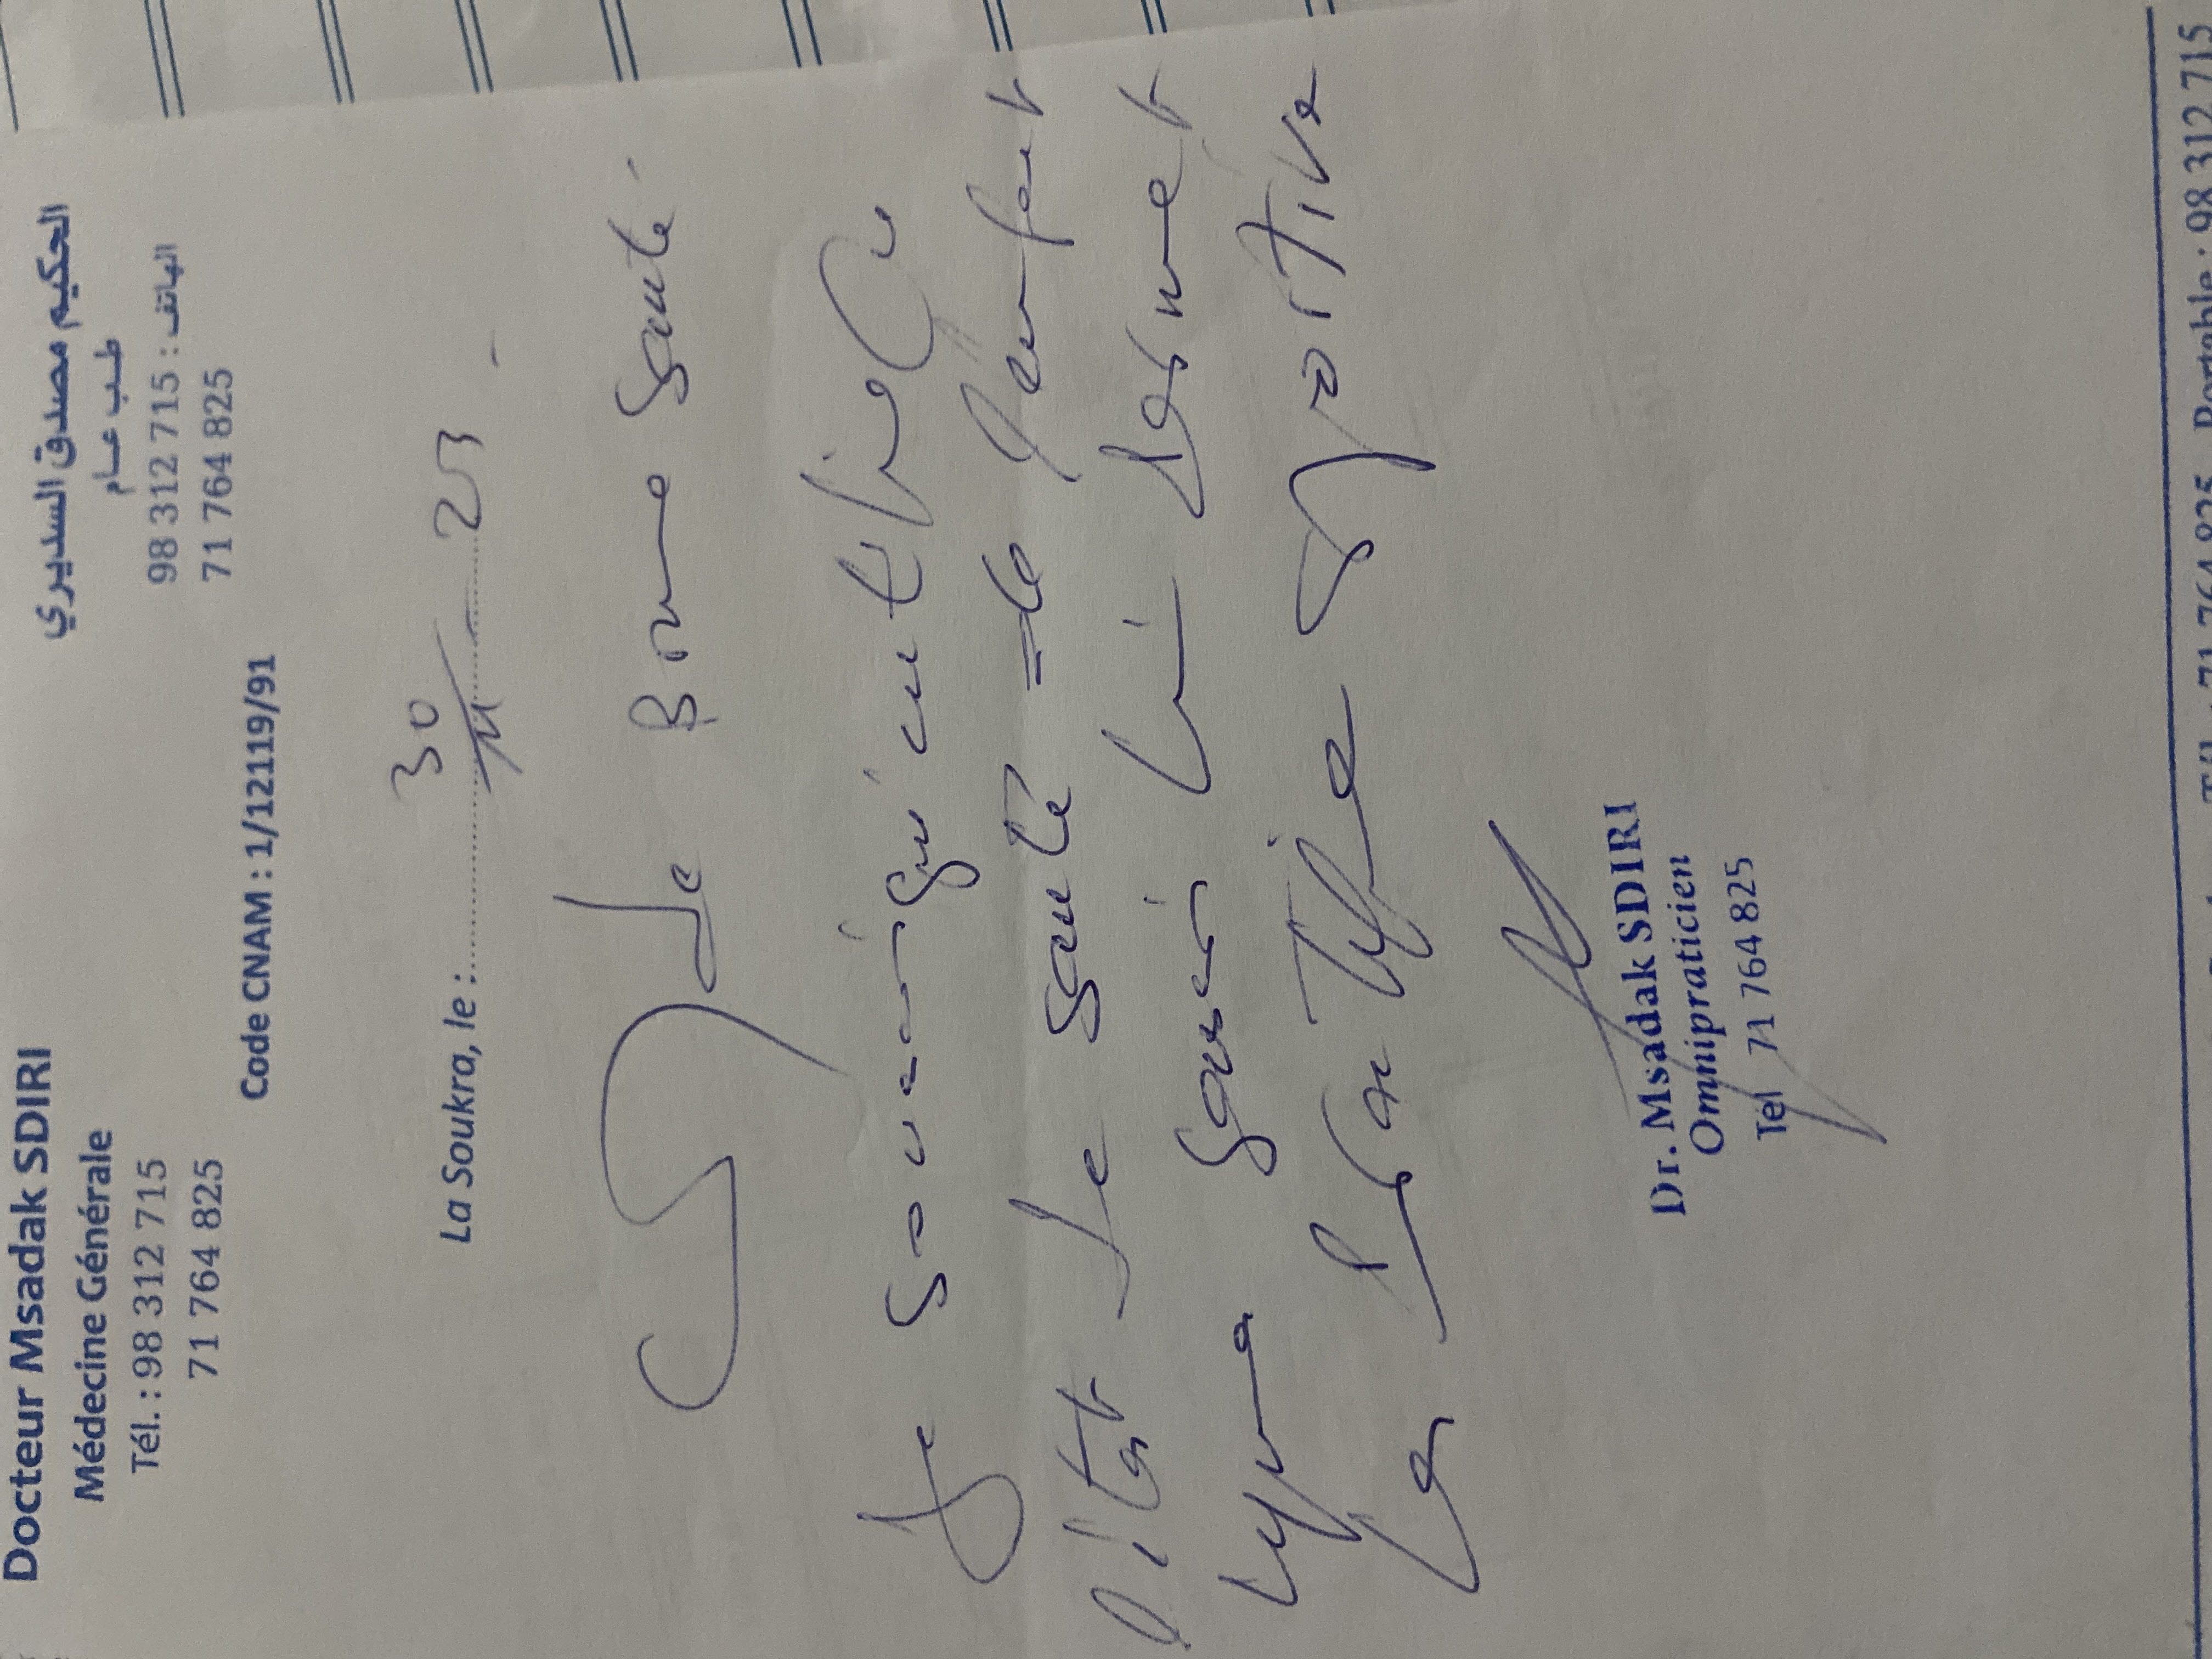 Docteur Msadak SDIRI
Médecine Générale
Tél. : 98 312 715
71 764 825
الحكيم مصدق السديري
طب عام
الهاتف : 98 312 715
71 764 825
Code CNAM : 1/12119/91
La Soukra, le : 30/11 25
de Bonne Santé
Je soussigné certifie que
l'état de santé de l'enfant
lui permet
la pratique sportive
Dr. Msadak SDIRI
Omnipraticien
Tél 71 764 825
71 764 825 Portable : 98 312 715